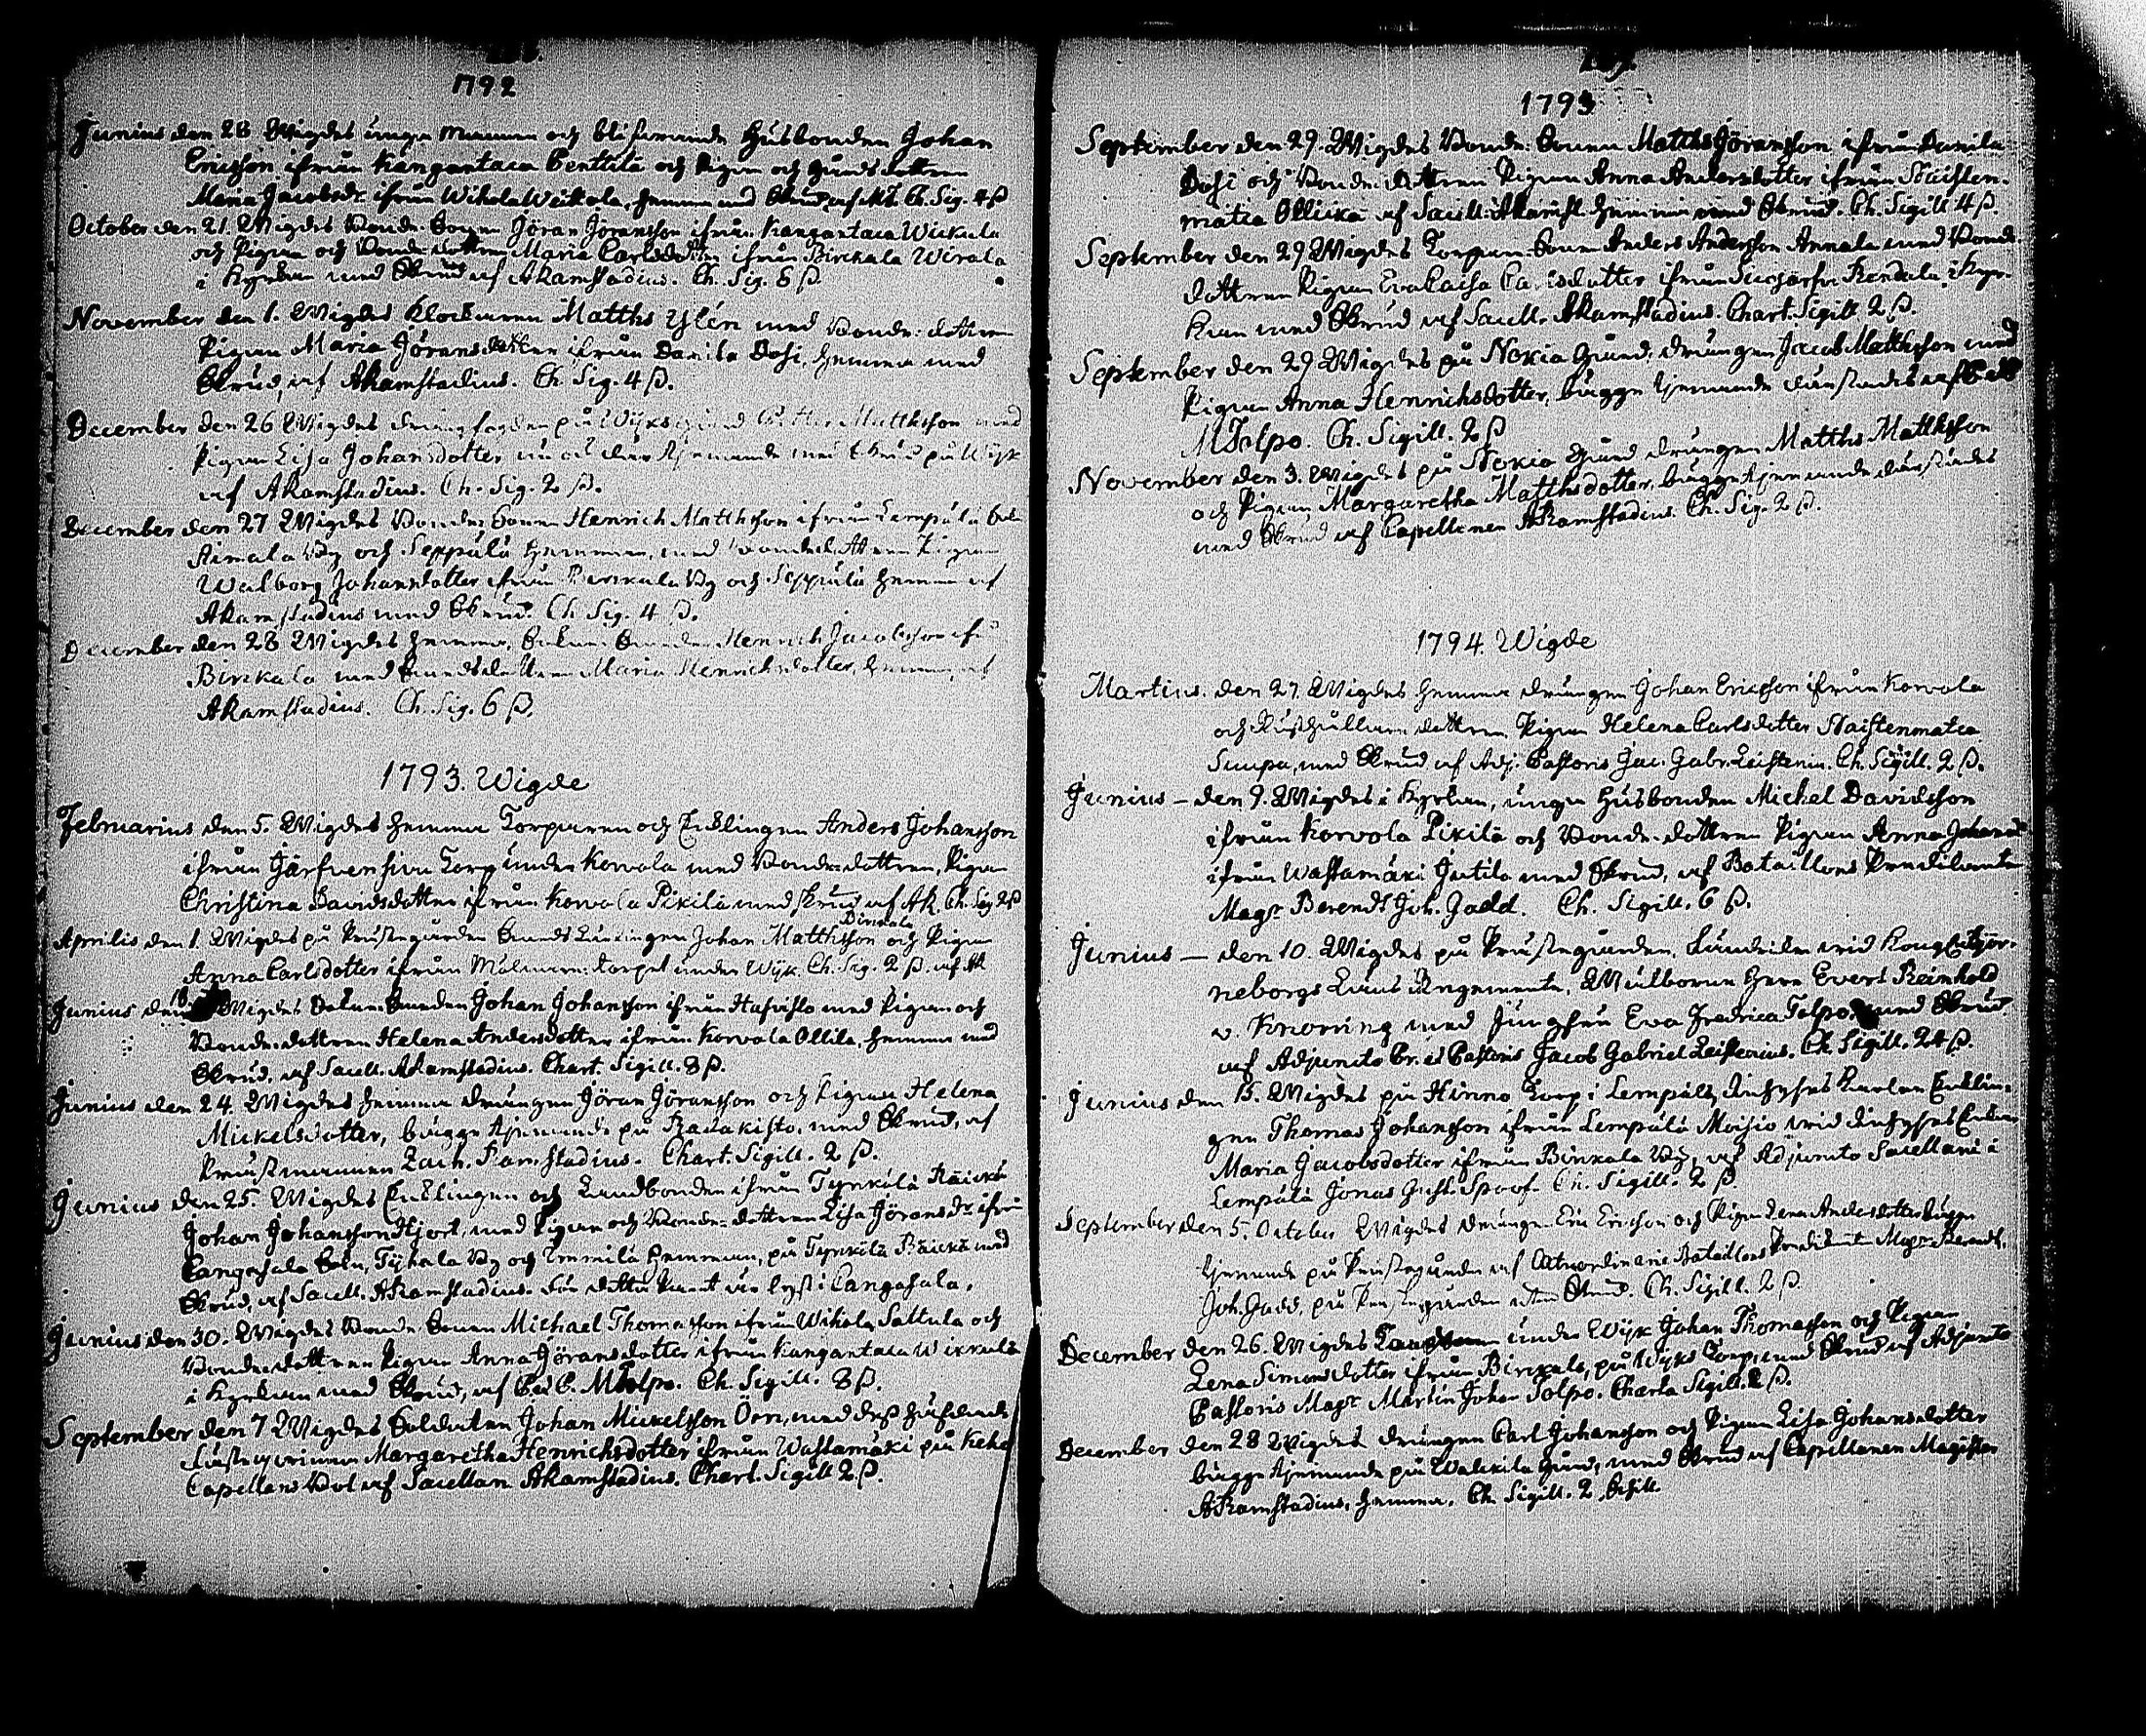 1792
Junius den 28 Wigdes unga mannen och blifwande Husbonden Johan
Ericsson ifrån Kangantaca Penttilä och Pigan och Hunds dottren
Maria Jacobsdr ifrån Wihola Weikola, hemma med Skrud, af Ch. Sig. 4 ß
October den 21. Wigdes Bonde-Sonen Jöran Jöransson ifrån Kangantaca Wickula
och Pigan och Bonde-dottren Maria Carlsdotter ifrån Birckala Wirala
i Kyrkan med Skrud af AKamstadius. Ch. Sig. 8 ß
November den 1. Wigdes Klockaren Matths Ylén med Bonde-dottren
Pigan Maria Jöransdotter ifrån Danila Dosi, hemma med
Skrud, af AKamstadius. Ch. Sig. 4 ß.
December den 26 Wigdes drängfogden på Wijks gård Matthsson med
Pigan Lisa Johansdotter med Skrud på Wijk
af AKamstadius. Ch. Sig. 2 ß.
December den 27 Wigdes Bonde Sonen Henrich Matthsson ifrån Lempälä Sokn
By och Seppälä Hemman, med Bondedottren Pigan
Walborg Johansdotter ifrån Birckala By och Seppälä hemman af
AKamstadius med Skrud. Ch. Sig. 4 ß.
December den 28 Wigdes hemma, Henrich Jacobsson ifrån
Birckala med Maria Henrichsdotter, hemma, af
AKamstadius. Ch. Sig. 6 ß.
1793. Wigde
Februarius den 5. Wigdes hemma Torparen och Enklingen Anders Johansson
ifrån Järfvensivu Torp under Korvola med Bonde-dottren, Pigan
Christina Davidsdotter ifrån Korvola Pikilä med skrud af AK. Ch. Sig 2 ß
Birckala
Aprilis den 1. Wigdes på Prästegården Johan Matthsson och Pigan
Anna Carlsdotter ifrån torpet under Wijk. Ch. Sig. 2 ß. af AK
Junius den 18 Wigdes Johan Johansson ifrån Hafvisto med Pigan och
Bonde-dottren Helena Andersdotter ifrån Korvola Ollila, hemma med
Skrud, af Sacell. AKamstadius. Chart. Sigill. 8 ß.
Junius den 24. Wigdes hemma drängen Jöran Jöransson och Pigan Helena
Mickelsdotter, bägge tjenande på Radakisto, med Skrud, af
Zach. Famstadius. Chart. Sigill. 2 ß.
Junius den 25. Wigdes Enklingen och Landbonden ifrån Tyrkälä Räickä
Johan Johansson Hjort, med Pigan och Bonde-dottren Lisa Jöransdr ifrån
Cangasala Sokn, Tyhala By och Emmilä Hemman, på Tyrkälä Räickä med
Skrud, af Sacell. AKamstadius. lyst i Cangasala.
Junius den 30. Wigdes Bonde Sonen Michael Thomasson ifrån Wihola Sattula och
Bonde dottren Pigan Anna Jöransdotter ifrån Kangantaca Wickula
i Kyrkan med Skrud, af MTolpo. Ch. Sigill. 8 ß.
September den 7 Wigdes Soldaten Johan Mickelsson Örn, med dess
Margaretha Henrichsdotter ifrån Wastamäki på Keho
Capellans Bol af Sacellan. AKamstadius. Chart. Sigill 2 ß.
1793
September den 29. Wigdes Bonde-Sonen Matths Jöransson ifrån Danila
Dosi och Bonde-dottren Pigan Anna Andersdotter ifrån Haisten-
matca Ollicka af Sacell. AKamst. hemma med Skrud. Ch. Sigill 4 ß.
September den 29 Wigdes Torpare-Sonen Anders Andersson Annala med Bonde
dottren Pigan Eva Caisa Carlsdotter ifrån Kendala, i Kyr-
kan med Skrud af Sacell. AKamstadius. Chart. Sigill 2 ß.
September den 29 Wigdes på Nokia Gård, drängen Jacob Matthsson med
Pigan Anna Henrichsdotter, bägge tjenande därstädes af
MTolpo. Ch. Sigill. 2 ß
November den 3. Wigdes på Nokia Gård drängen Matths Matthsson
och Pigan Margaretha Matthsdotter, bägge tjenande därstädes
med Skrud af Capellanen AKamstadius. Ch. Sig. 2 ß.
1794. Wigde
Martius. den 27. Wigdes hemma drängen Johan Ericsson ifrån Korvola
och Rusthållare dottren Pigan Helena Carlsdotter Haistenmatca
Simpa, med Skrud af Adj. Pastoris Jac. Gabr. Leistenius. Ch. Sigill. 2 ß.
Junius - den 9. Wigdes i Kyrkan, unga Husbonden Michel Davidsson
ifrån Korvola Pikilä och Bonde-dottren Pigan Anna Johansdr
ifrån Wastamäki Jutila med Skrud, af Bataillons Predikanten
Magr Berendt Joh. Gadd. Ch. Sigill. 6 ß.
Junius - den 10. Wigdes på Prästegården, vid Kongl. Björ-
neborgs Läns Regemente, Wälborne Herr Evert Reinhold
v. Knorring med Jungfru Eva Fredrica Tolpo med Skrud
af Adjuncto Pastoris Jacob Gabriel Leistenius. Ch. Sigill. 24 ß.
Junius den 15. Wigdes på Hinno Torp i Lempälä, Enklin-
gen Thomas Johansson ifrån Lempälä Moisio med Enkan
Maria Jacobsdotter ifrån Birckala By, af Adjuncto Sacellani i
Lempälä Jonas Gust. Spoof. Ch. Sigill. 2 ß
September den 5. October Wigdes drängen Eric Ericsson och Pigan Andersdotter bägge
tjenande på Prästegården af Bataillons Predikanten Magr Berendt
Joh. Gadd, på Prästegården utan Skrud. Ch. Sigill. 2 ß.
December den 26. Wigdes under Wijk Johan Thomasson och Pigan
Lena Simonsdotter ifrån Birckala, på Wijks Torp, med Skrud af Adjuncto
Pastoris Magr Martin Johan Tolpo. Charta Sigill. 2 ß.
December den 28 Wigdes drängen Carl Johansson och Pigan Lisa Johansdotter
bägge tjenande på Walkila Gård, med Skrud af Capellanen Magister
AKamstadius, hemma. Ch. Sigill. 2 skill.